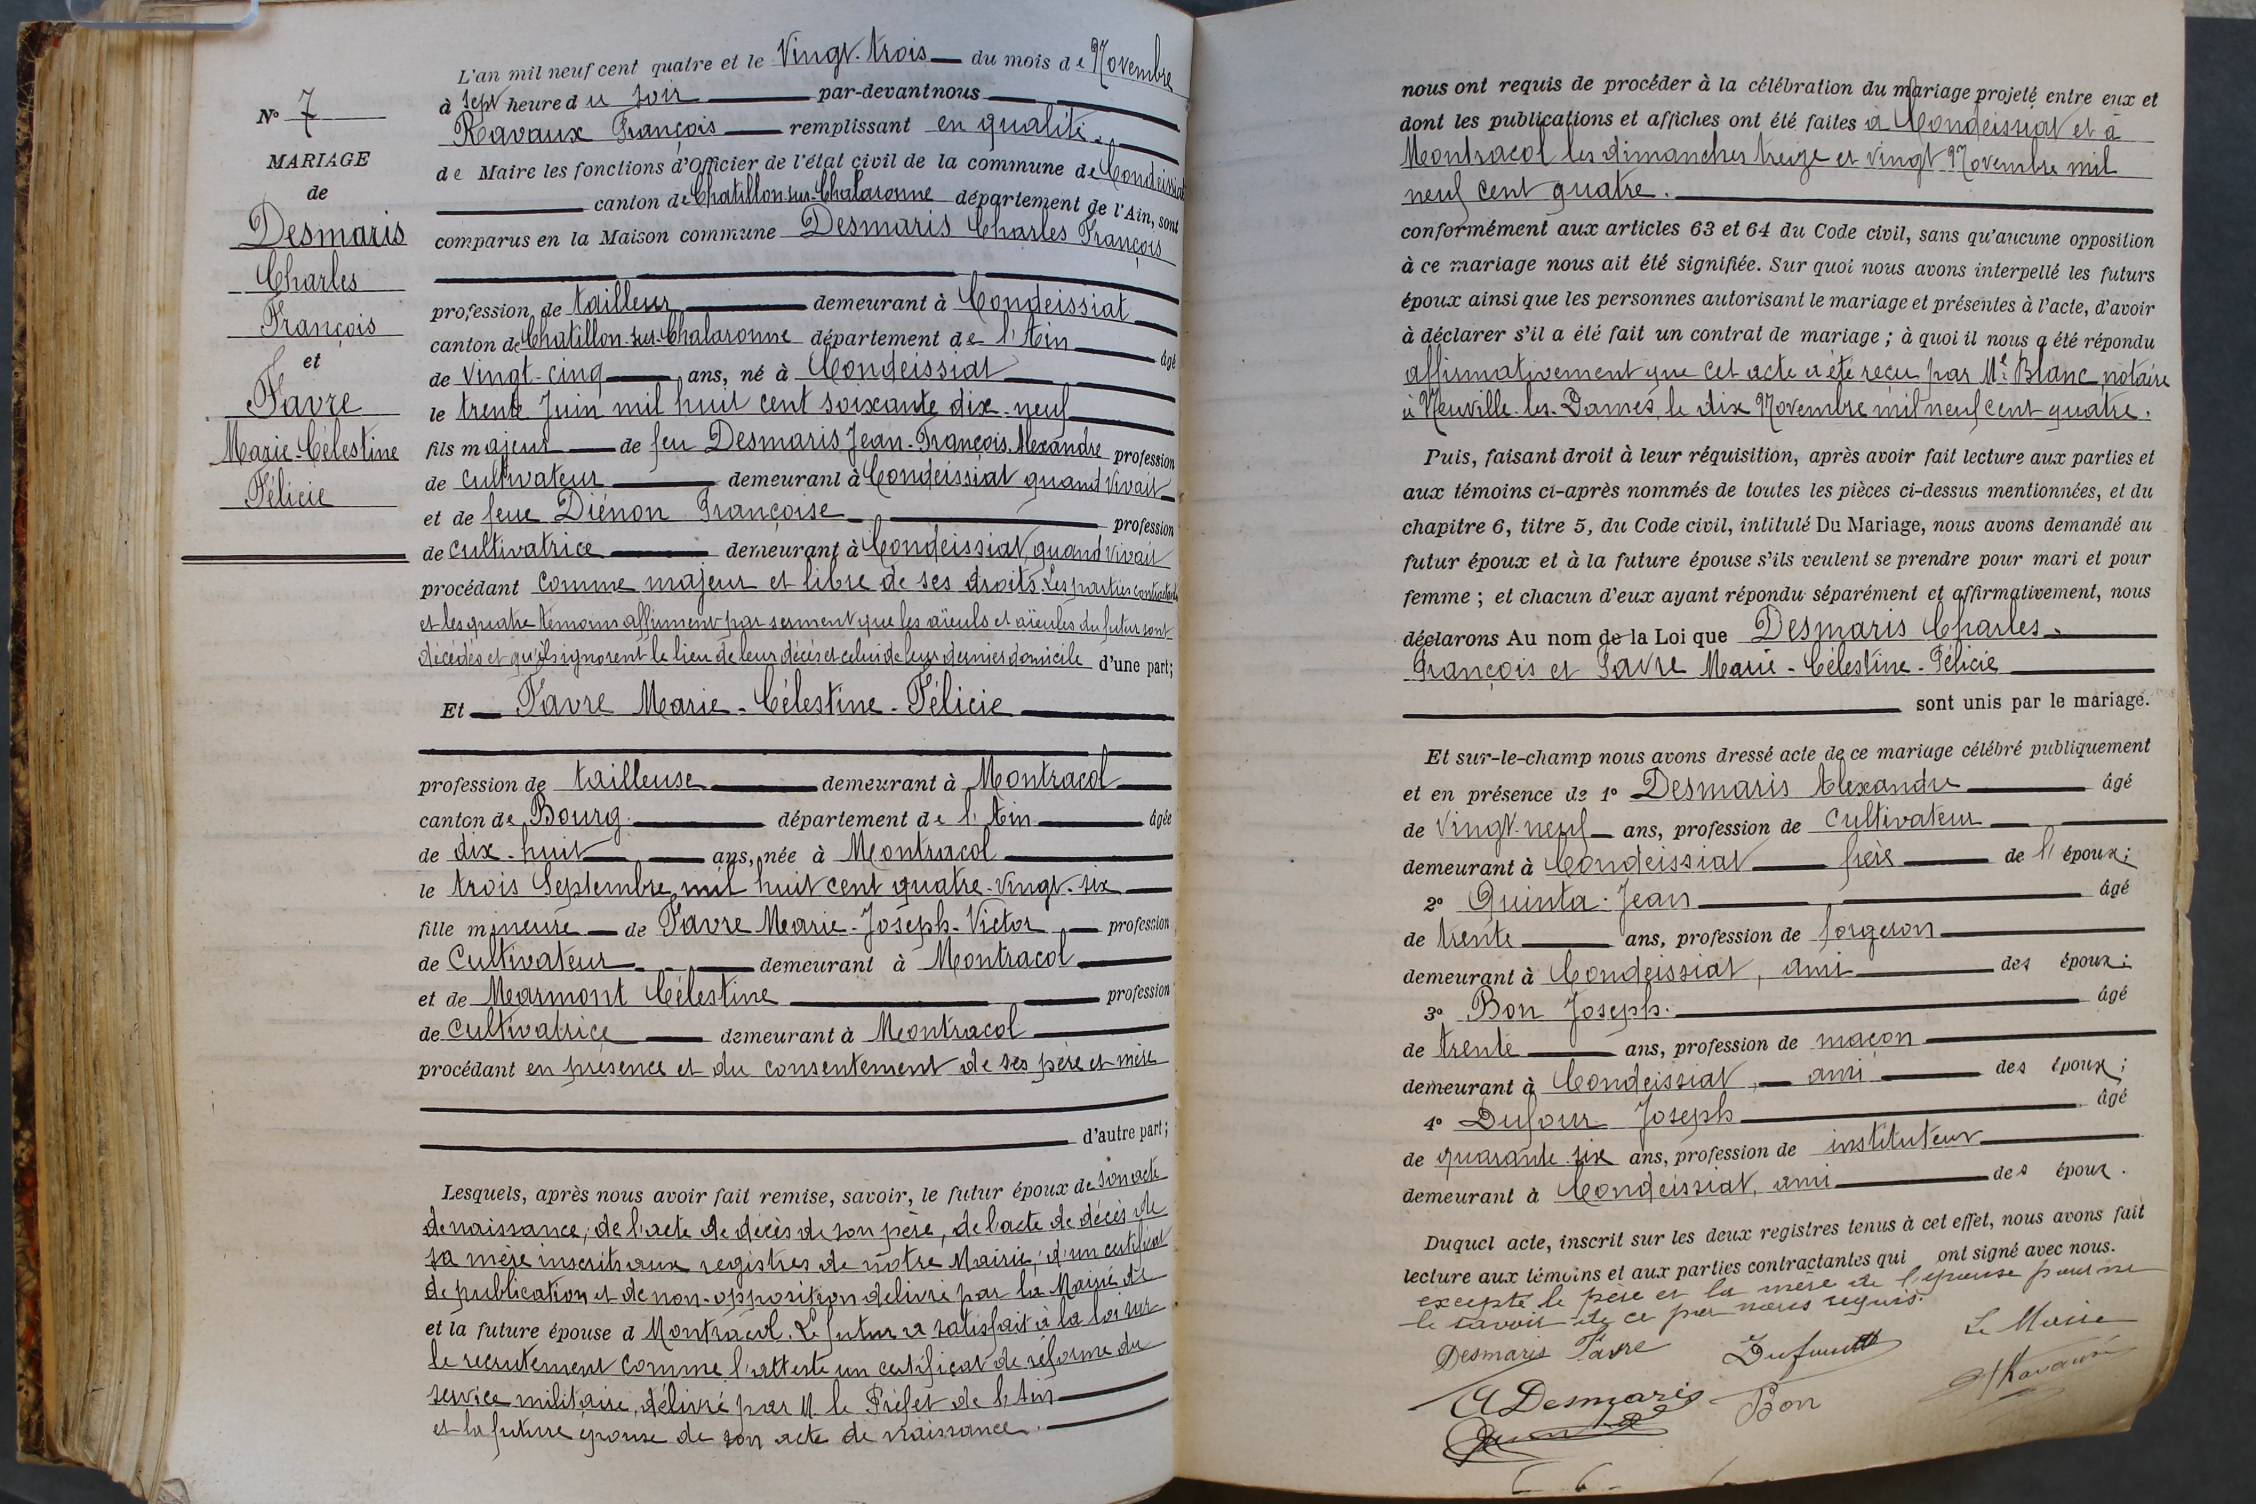 N° 7
MARIAGE
de
Desmaris
Charles
François
et
Favre
Marie-Célestine
Félicie
L'an mil neuf cent quatre et le Vingt-trois du mois de Novembre
à sept heure du soir par-devant nous
Ravaux François remplissant en qualité
de Maire les fonctions d'Officier de l'état civil de la commune de Condeissiat
canton de Chatillon-sur-Chalaronne département de l'Ain, sont
comparus en la Maison commune Desmaris Charles François
profession de tailleur demeurant à Condeissiat
canton de Chatillon-sur-Chalaronne département de l'Ain âgé
de vingt-cinq ans, né à Condeissiat
le trente Juin mil huit cent soixante dix-neuf
fils majeur de feu Desmaris Jean-François Alexandre profession
de cultivateur demeurant à Condeissiat quand vivait
et de feue Diénon Françoise profession
de cultivatrice demeurant à Condeissiat, quand vivait
procédant comme majeur et libre de ses droits. Les parties contractantes
et les quatre témoins affirment par serment que les aïeuls et aïeules du futur sont
décédés et qu'ils ignorent le lieu de leur décès et celui de leur dernier domicile d'une part;
Et Favre Marie-Célestine-Félicie
profession de tailleuse demeurant à Montracol
canton de Bourg département de l'Ain âgée
de dix-huit ans, née à Montracol
le trois Septembre mil huit cent quatre-vingt-six
fille mineure de Favre Marie-Joseph-Victor profession
de Cultivateur demeurant à Montracol
et de Marmont Célestine profession
de Cultivatrice demeurant à Montracol
procédant en présence et du consentement de ses père et mère
d'autre part;
Lesquels, après nous avoir fait remise, savoir, le futur époux de son acte
de naissance, de l'acte de décès de son père, de l'acte de décès de
sa mère inscrits aux registres de notre Mairie, d'un certificat
de publication et de non-opposition délivré par la Mairie de
et la future épouse d Montracol. Le futur a satisfait à la loi sur
le recrutement comme l'atteste un certificat de réforme du
service militaire, délivré par M. le Préfet de l'Ain
et la future épouse de son acte de naissance.
nous ont requis de procéder à la célébration du mariage projeté entre eux et
dont les publications et affiches ont été faites à Condeissiat et à
Montracol les dimanches treize et vingt Novembre mil
neuf cent quatre.
conformément aux articles 63 et 64 du Code civil, sans qu'aucune opposition
à ce mariage nous ait été signifiée. Sur quoi nous avons interpellé les futurs
époux ainsi que les personnes autorisant le mariage et présentes à l'acte, d'avoir
à déclarer s'il a été fait un contrat de mariage ; à quoi il nous a été répondu
affirmativement que cet acte a été reçu par Me Blanc notaire
à Neuville-les-Dames, le dix Novembre mil neuf cent quatre.
Puis, faisant droit à leur réquisition, après avoir fait lecture aux parties et
aux témoins ci-après nommés de toutes les pièces ci-dessus mentionnées, et du
chapitre 6, titre 5, du Code civil, intitulé Du Mariage, nous avons demandé au
futur époux et à la future épouse s'ils veulent se prendre pour mari et pour
femme ; et chacun d'eux ayant répondu séparément et affirmativement, nous
déclarons Au nom de la Loi que Desmaris Charles-
François et Favre Marie-Célestine-Félicie
sont unis par le mariage.
Et sur-le-champ nous avons dressé acte de ce mariage célébré publiquement
et en présence de 1° Desmaris Alexandre âgé
de vingt-neuf ans, profession de cultivateur
demeurant à Condeissiat frère de l' époux;
2° Quinta Jean âgé
de trente ans, profession de forgeron
demeurant à Condeissiat, ami des époux;
3° Bon Joseph. âgé
de trente ans, profession de maçon
demeurant à Condeissiat, ami des époux;
4° Dufour Joseph âgé
de quarante six ans, profession de instituteur
demeurant à Condeissiat, ami des époux.
Duquel acte, inscrit sur les deux registres tenus à cet effet, nous avons fait
lecture aux témoins et aux parties contractantes qui ont signé avec nous.
excepté le père et la mère de l'épouse pour ne
le savoir de ce par nous requis.
Desmaris Favre Dufour Le Maire
A Desmaris Bon Ravaux